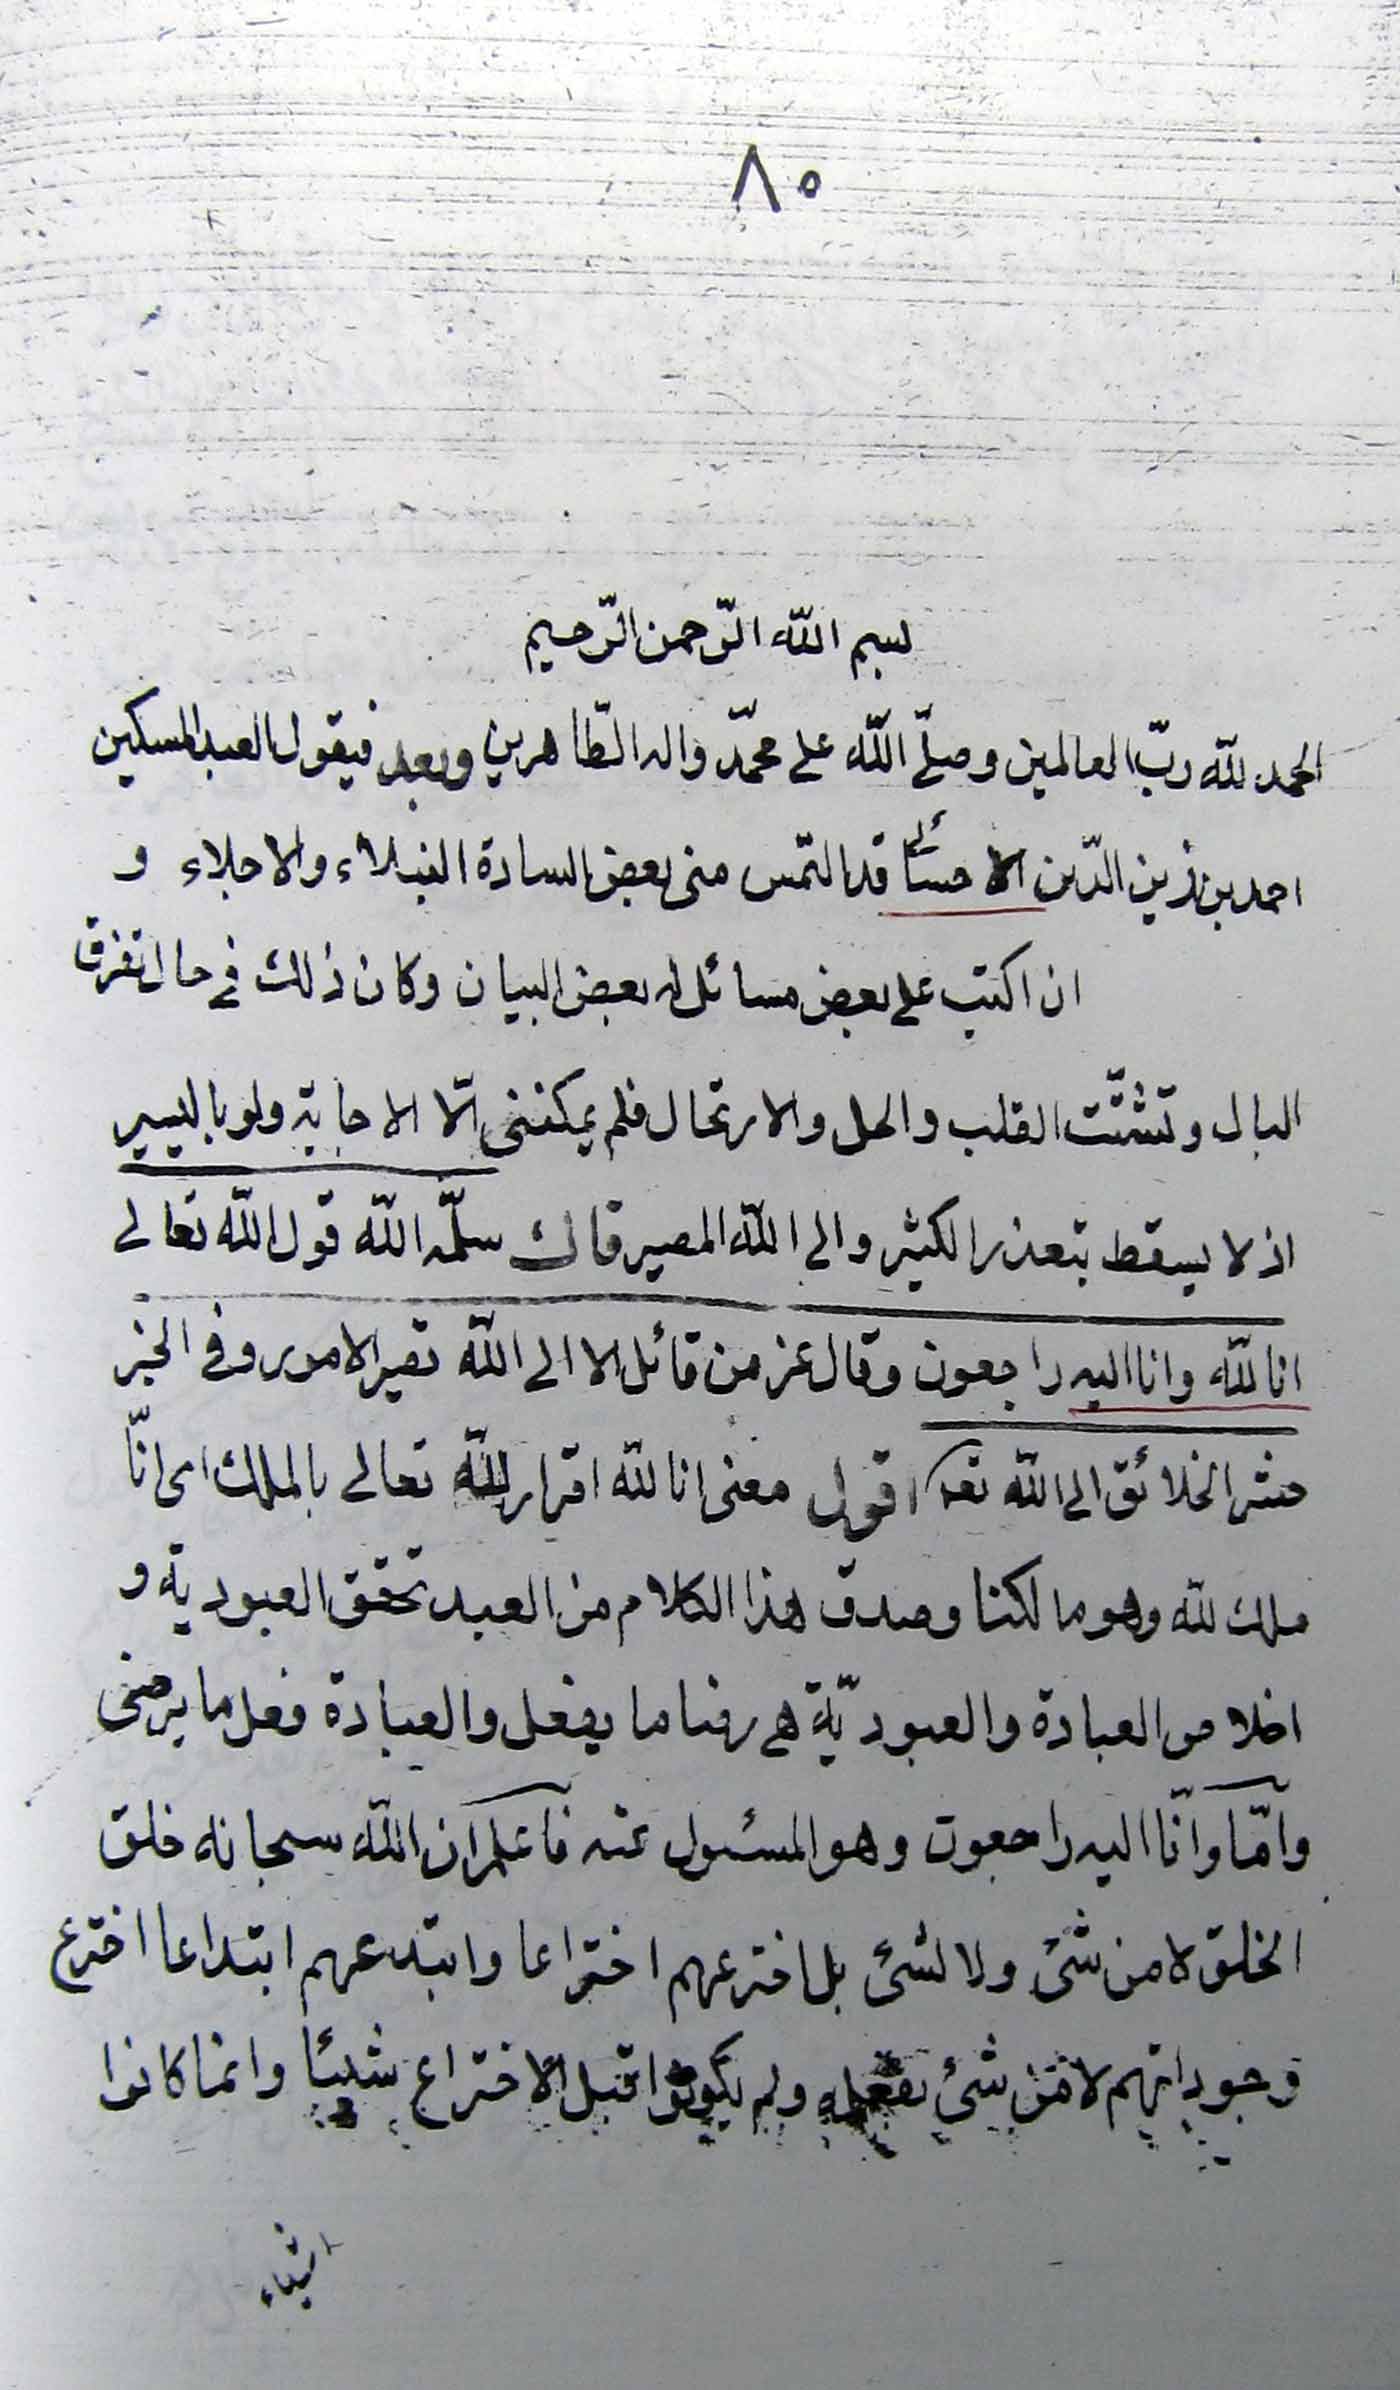 ٨٠
بسم الله الرّحمن الرّحيم
الحمد لله ربّ العالمين وصلّى الله على محمّد واله الطّاهرين وبعد فيقول العبد المسكين
احمد بن زين الدّين الاحسائى قد التمس منى بعض السادة النبلاء والاجلاء و
ان اكتب على بعض مسائل له بعض البيان وكان ذلك فى حال تفرق
البال وتشتّت القلب والحل والارتحال فلم يمكننى الّا الاجابة ولو باليسير
اذ لا يسقط بتعذر الكثير والى الله المصير قال سلّمه الله قول الله تعالى
انا لله وانا اليه راجعون وقال عز من قائل الا الى الله تصير الامور وفى الخبر
حشر الخلائق الى الله تعـ اقول معنى انا لله اقرار لله تعالى بالملك اى انّا
ملك لله وهو مالكنا وصدق هذا الكلام من العبد تحقق العبودية و
اخلاص العبادة والعبوديّة هى رضا ما يفعل والعبادة فعل ما يرضى
وامّا وانّا اليه راجعون وهو المسئول عنه فاعلم ان الله سبحانه خلق
الخلق لا من شئ ولا لشئ بل اخترعهم اختراعا وابتدعهم ابتداعا اخترع
وجوداتهم لا من شئ بفعله ولم يكونوا قبل الاختراع شيئا وانما كانوا
اشياء